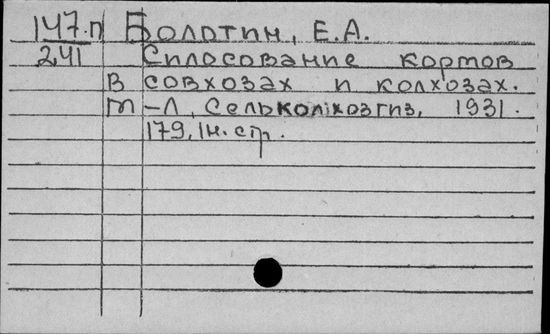 147.П Болотин, Е.А.
241 Силосование кормов
в совхозах и колхозах.
М-Л, Сельколхозгиз, 1931.
179, 1н. стр.